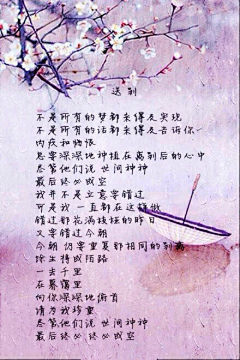 送别
不是所有的梦都来得及实现
不是所有的话都来得及告诉你
内疚和悔恨
总要深深地种植在离别后的心中
尽管他们说 世间种种
最后终必成空
我并不是立意要错过
可是我 一直都在这样做
错过那花满枝桠的昨日
又要错过今朝
今朝 仍要重复那相同的别离
余生将成陌路
一去千里
在暮霭里
向你深深地俯首
请为我珍重
尽管他们说 世间种种
最后终必 终必成空